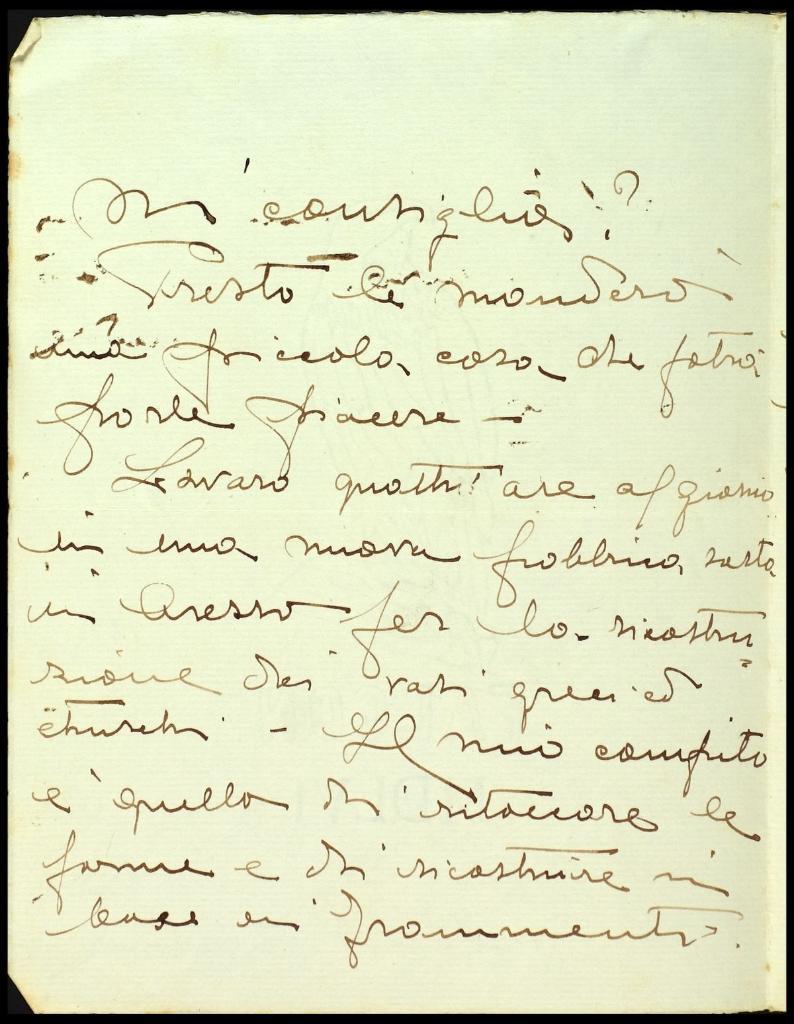 Mi consiglia?
Presto le manderò
una piccola cosa che potrà
forle piacere -
Lavoro quattr'ore al giorno
in una nuova fabbrica sorta
in Arezzo per la ricostru=
zione dei vasi greci ed
etruschi - Il mio compito
e' quello di ritoccare le
forme e di ricostruire in
base ai frammenti.